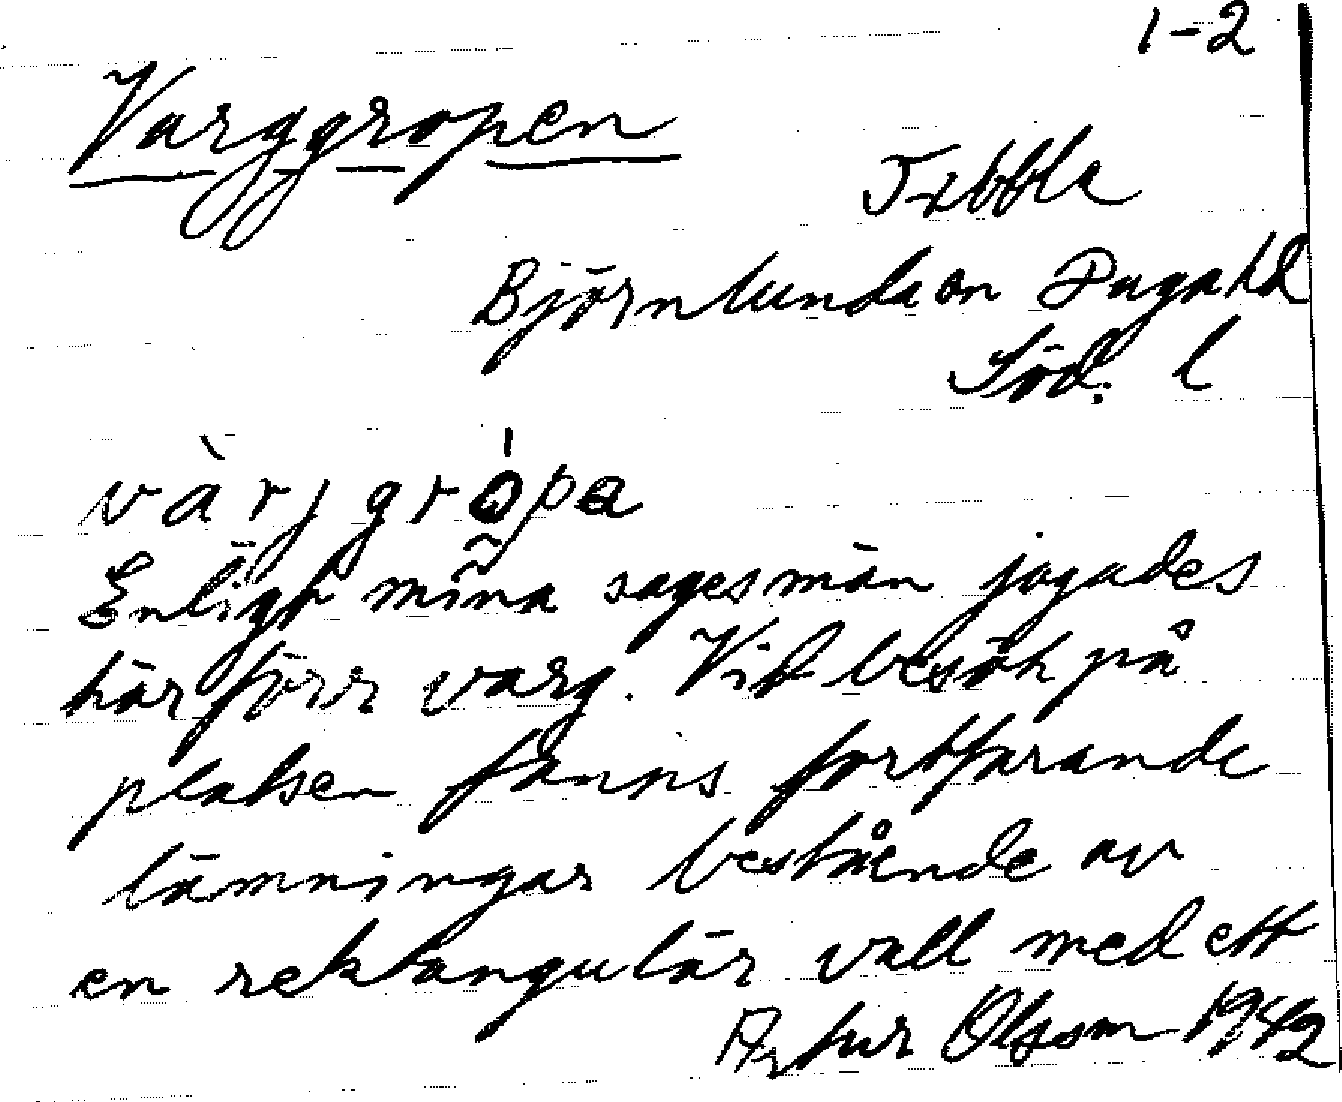 1-2
Varggropen
Täbbla
Björnlunda sn Daga hd
Söd. l
vàrjgrópa
Enligt mina sagesmän jagades
här förr varg. Vid besök på
platsen fanns fortfarande
lämningar bestående av
en rektangulär vall med ett
Artur Olsson 1942